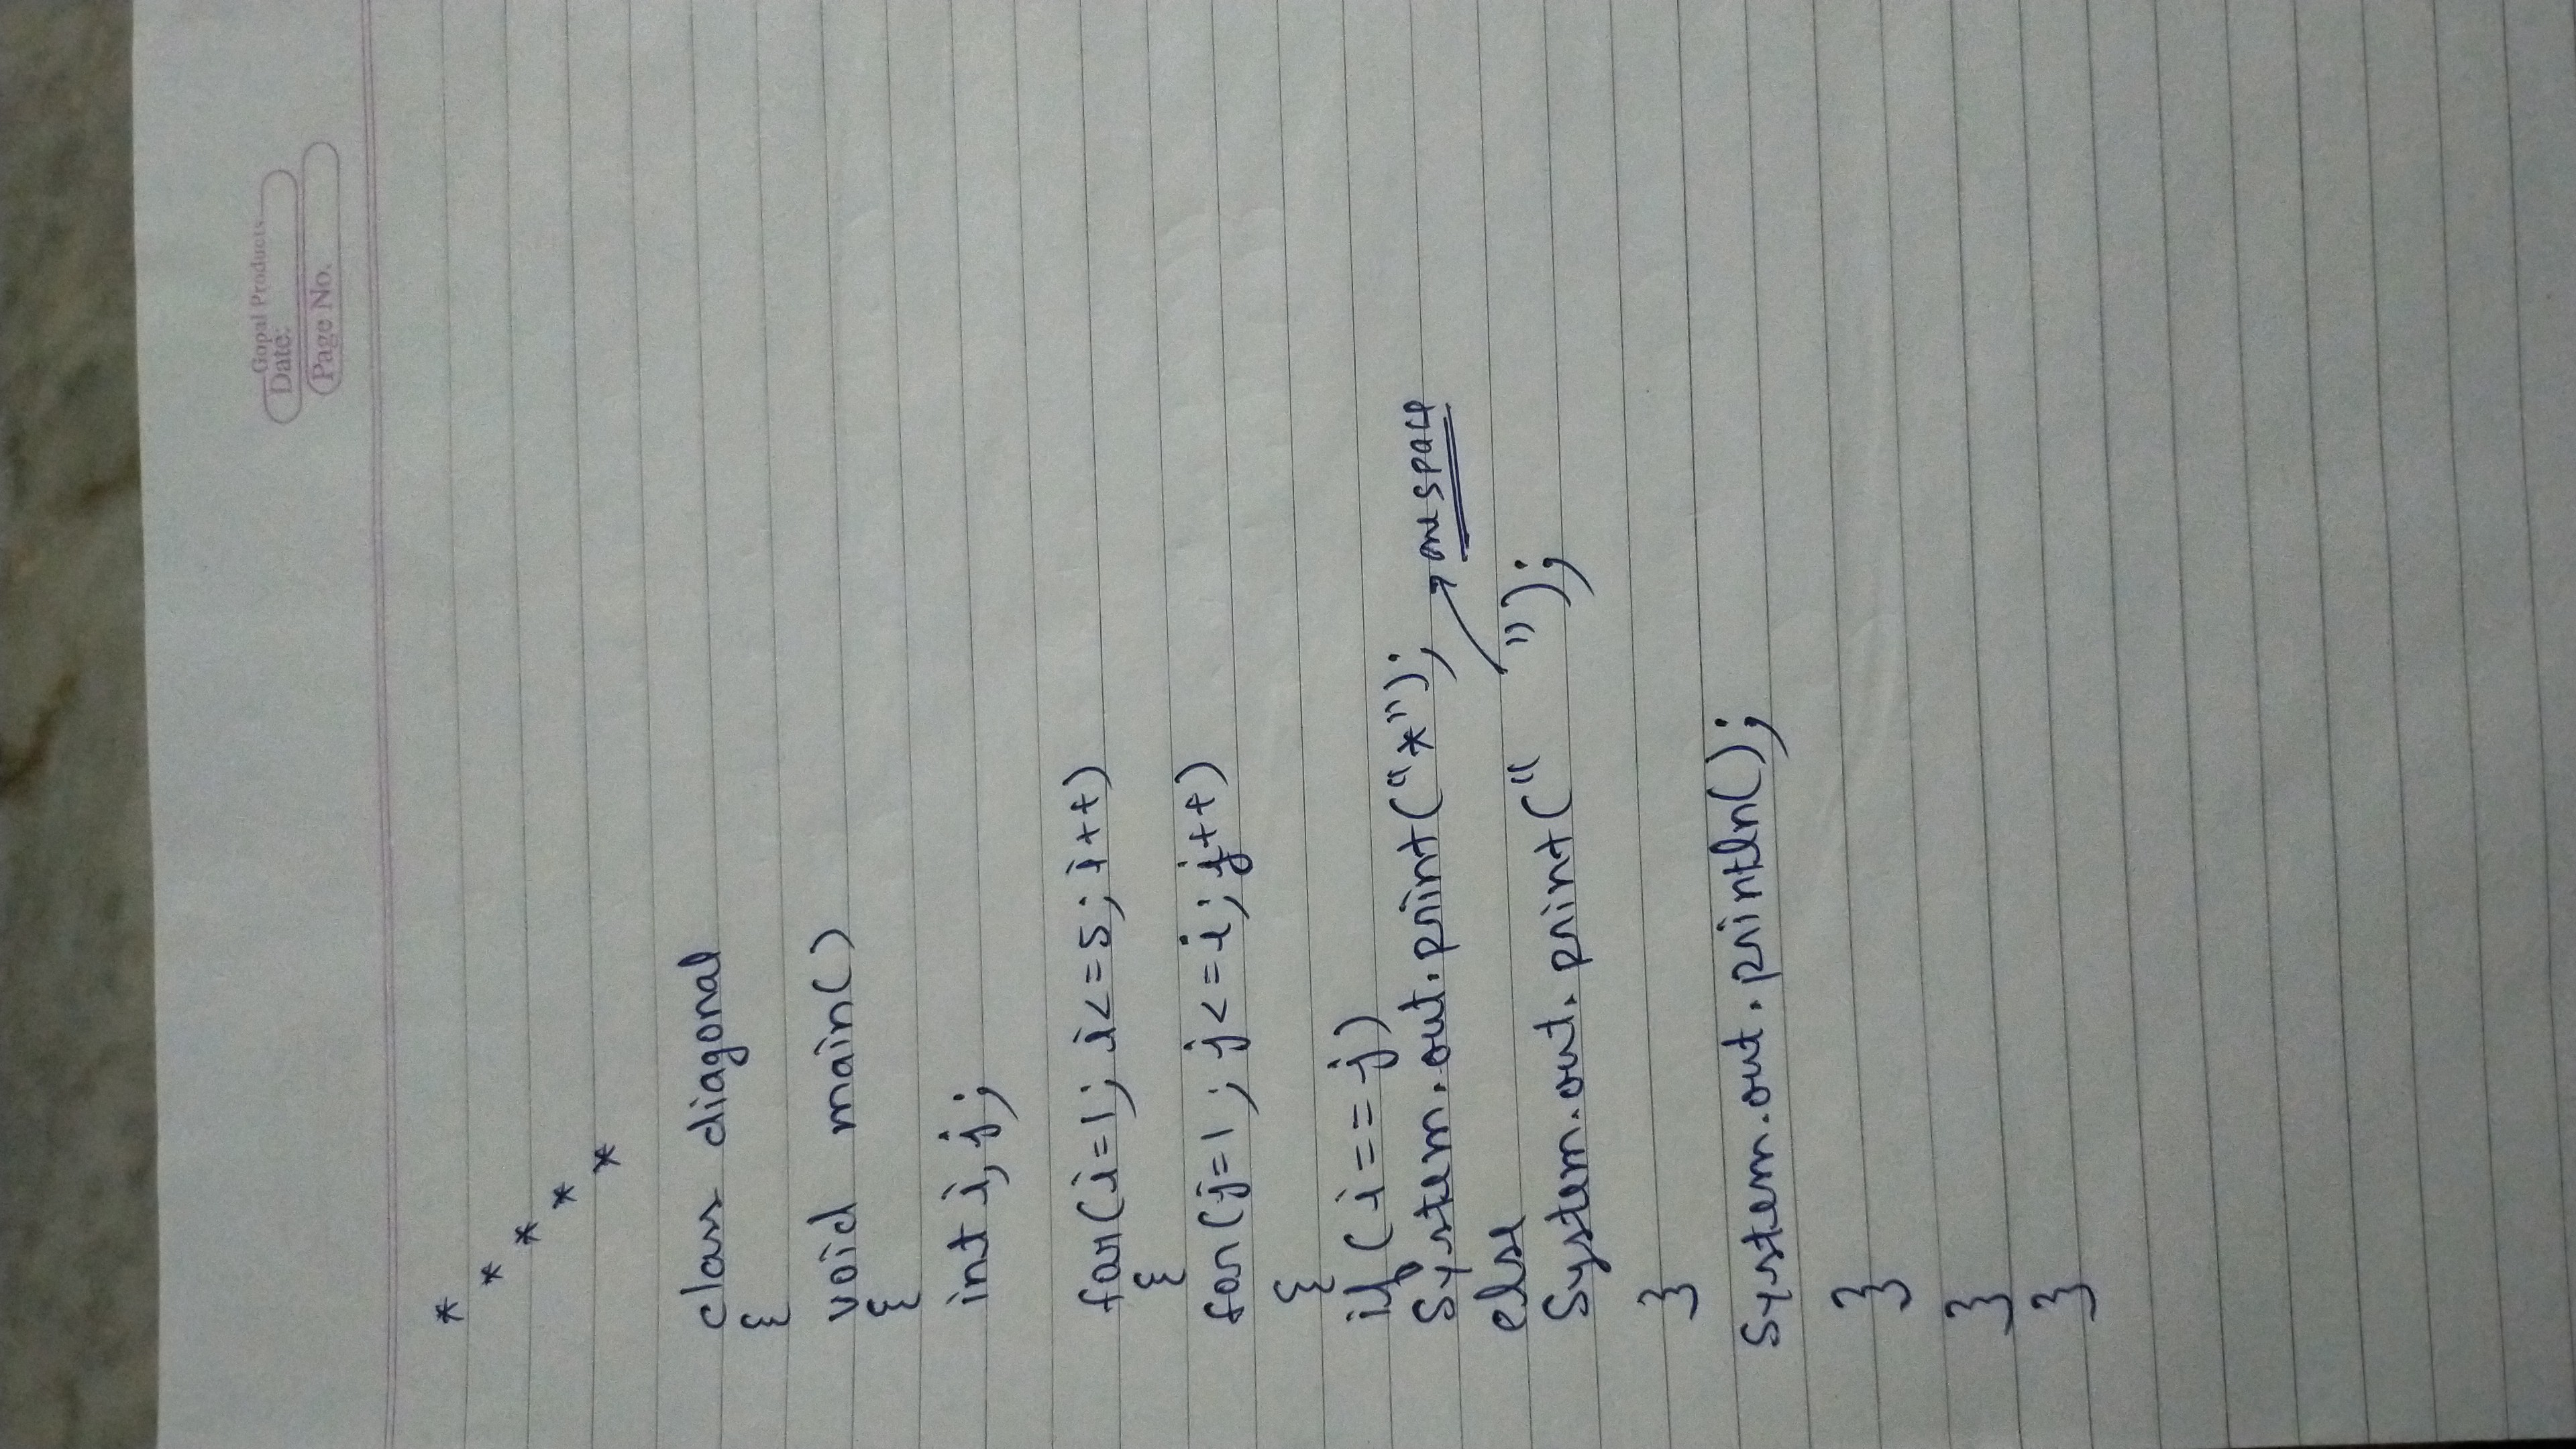 Gopal Products
Date:
Page No.
*
*
*
*
*
class diagonal
{
void main()
{
int i,j;
for(i=1; i<=5; i++)
{
for(j=1; j<=i; j++)
{
if(i==j)
System.out.print("*");
else → one space
System.out.print(" ");
}
System.out.println();
}
}
}